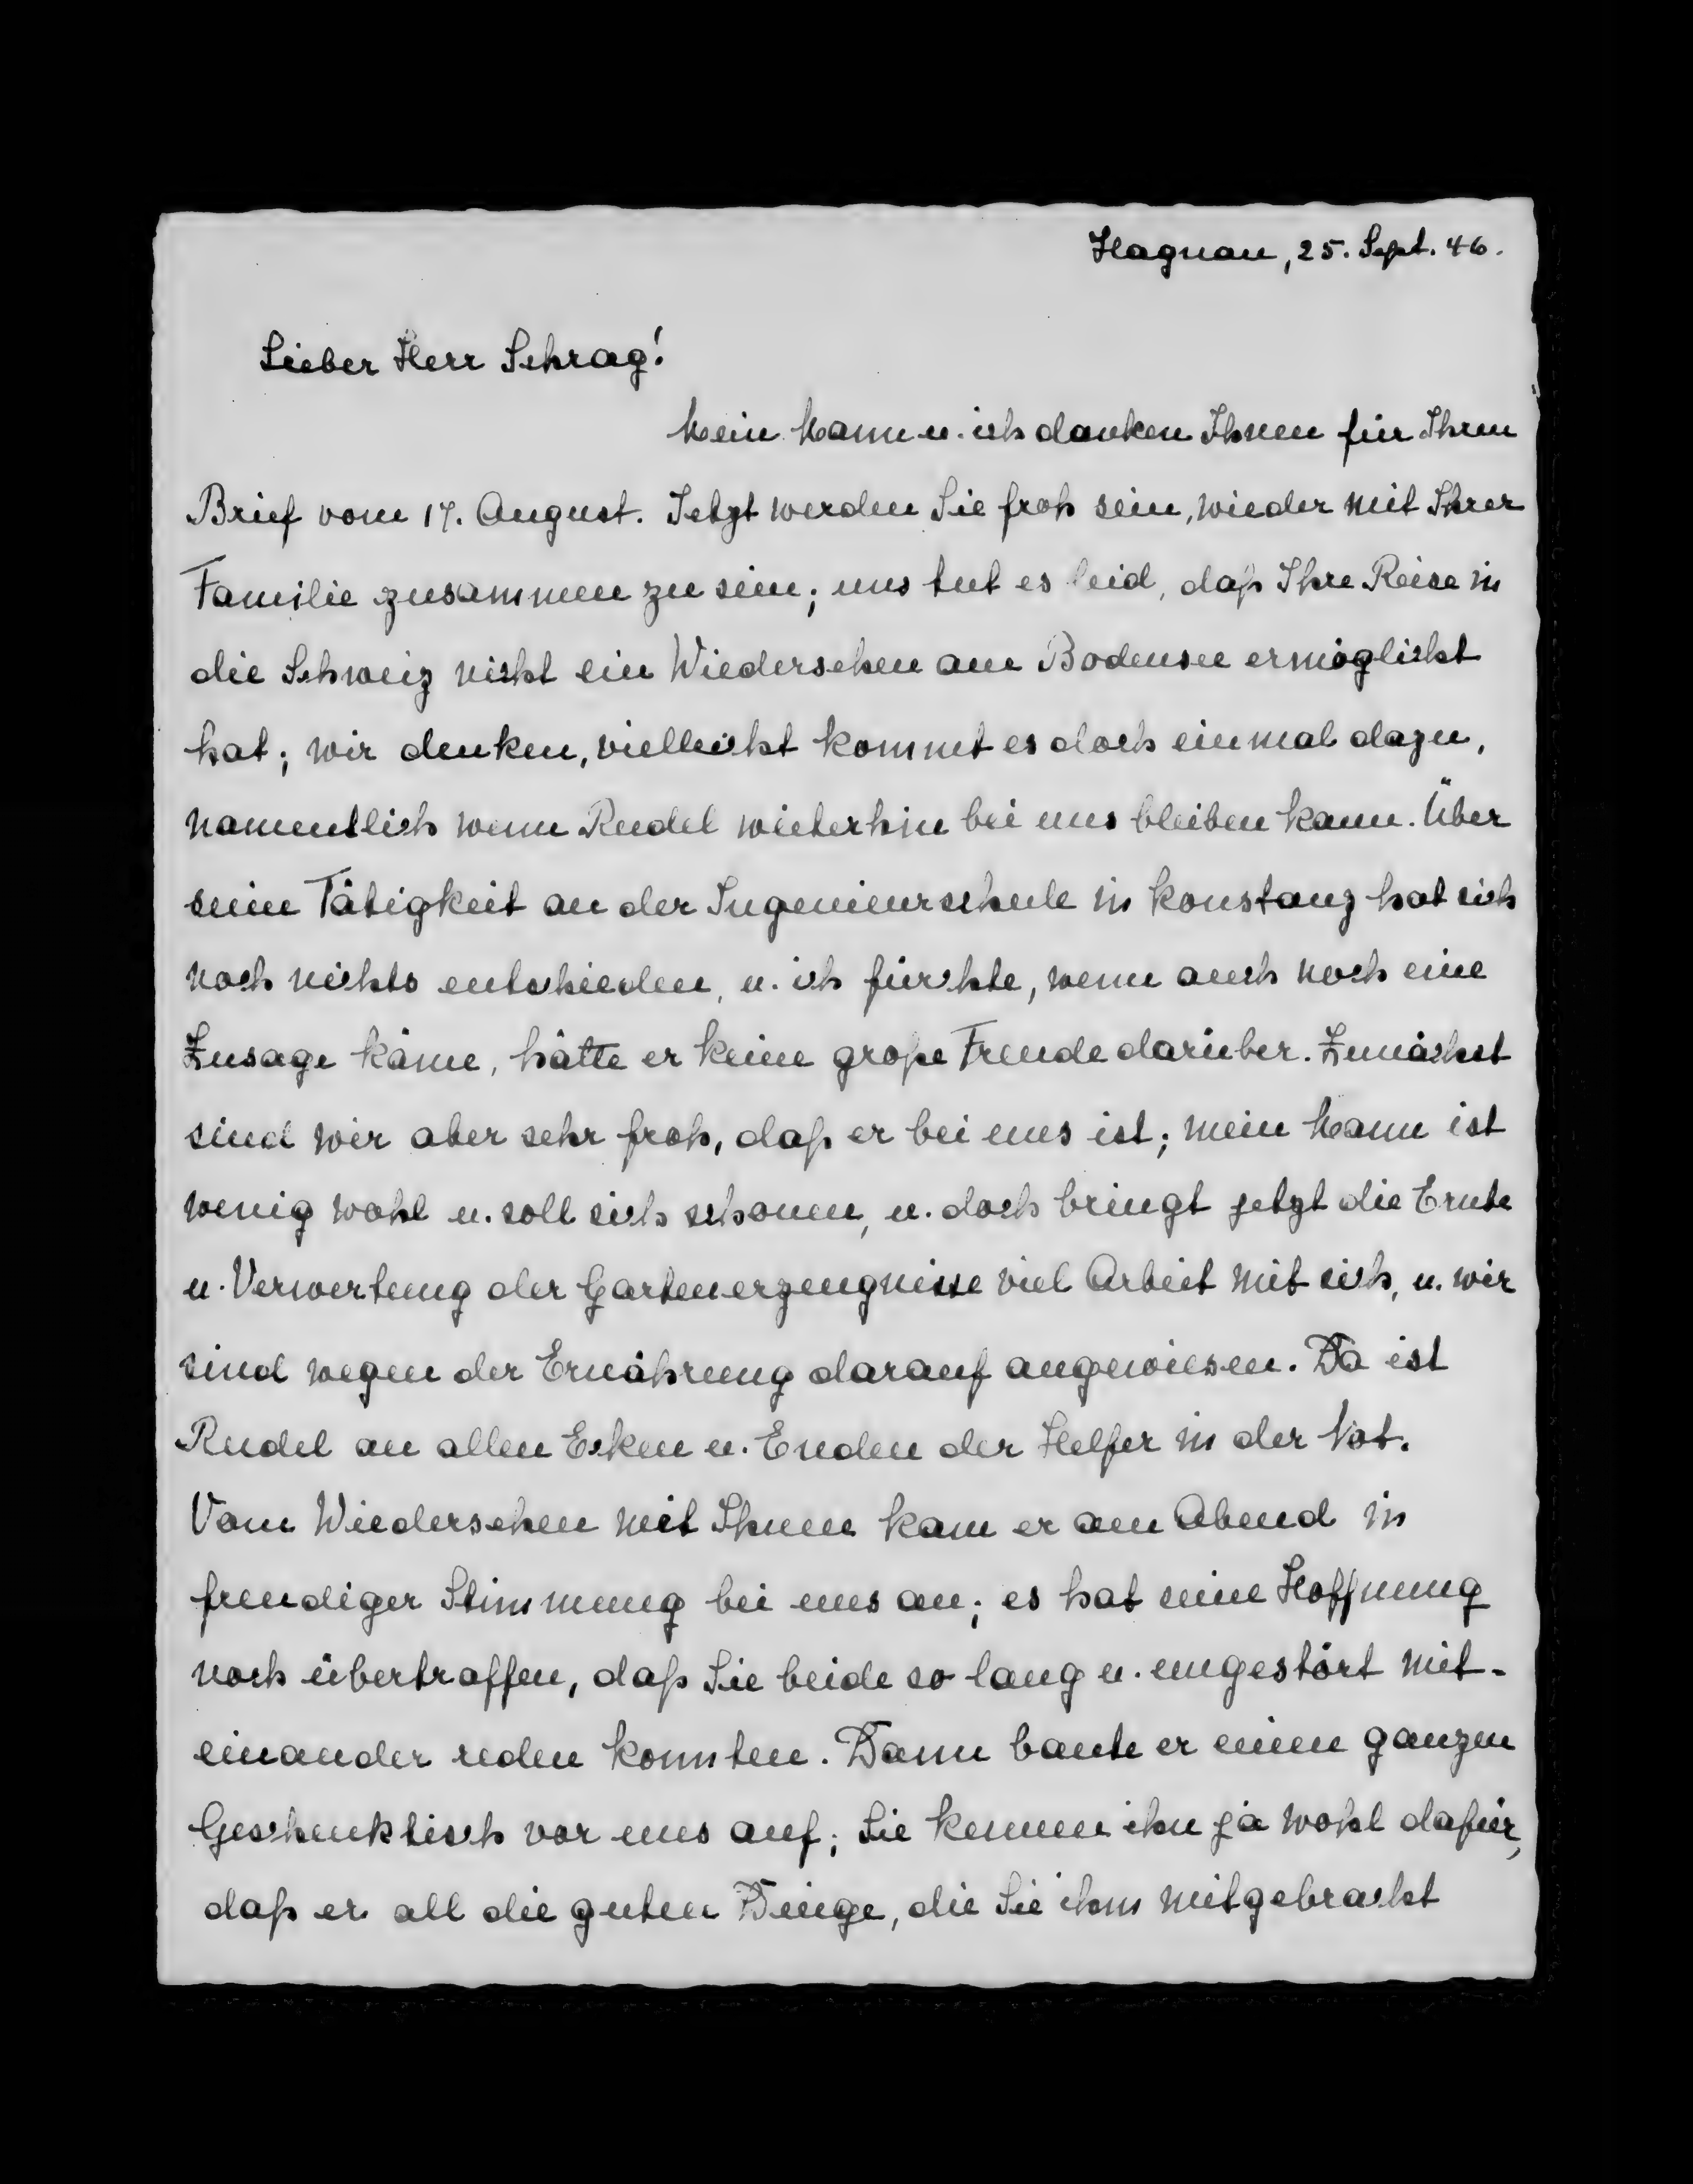 Hagnau, 25. Sept. 46.
Lieber Herr Schrag!
Mein Mann u. ich danken Ihnen für Ihren
Brief vom 17. August. Jetzt werden Sie froh sein, wieder mit Ihrer
Familie zusammen zu sein; uns tut es leid, daß Ihre Reise in
die Schweiz nicht ein Wiedersehen am Bodensee ermöglicht
hat; wir denken, vielleicht kommt es doch einmal dazu,
namentlich wenn Rudel weiterhin bei uns bleiben kann. Über
seine Tätigkeit an der Ingenieurschule in Konstanz hat sich
noch nichts entschieden, u. ich fürchte, wenn auch noch eine
Zusage käme, hätte er keine große Freude darüber. Zunächst
sind wir aber sehr froh, daß er bei uns ist; mein Mann ist
wenig wohl u. soll sich schonen, u. doch bringt jetzt die Ernte
u. Verwertung der Gartenerzeugnisse viel Arbeit mit sich, u. wir
sind wegen der Ernährung darauf angewiesen. Da ist
Rudel an allen Ecken u. Enden der Helfer in der Not.
Vom Wiedersehen mit Ihnen kam er am Abend in
freudiger Stimmung bei uns an; es hat seine Hoffnung
noch übertroffen, daß Sie beide so lang u. ungestört mit-
einander reden konnten. Dann baute er einen ganzen
Geschenktisch vor uns auf; Sie kennen ihn ja wohl dafür,
daß er all die guten Dinge, die Sie ihm mitgebracht